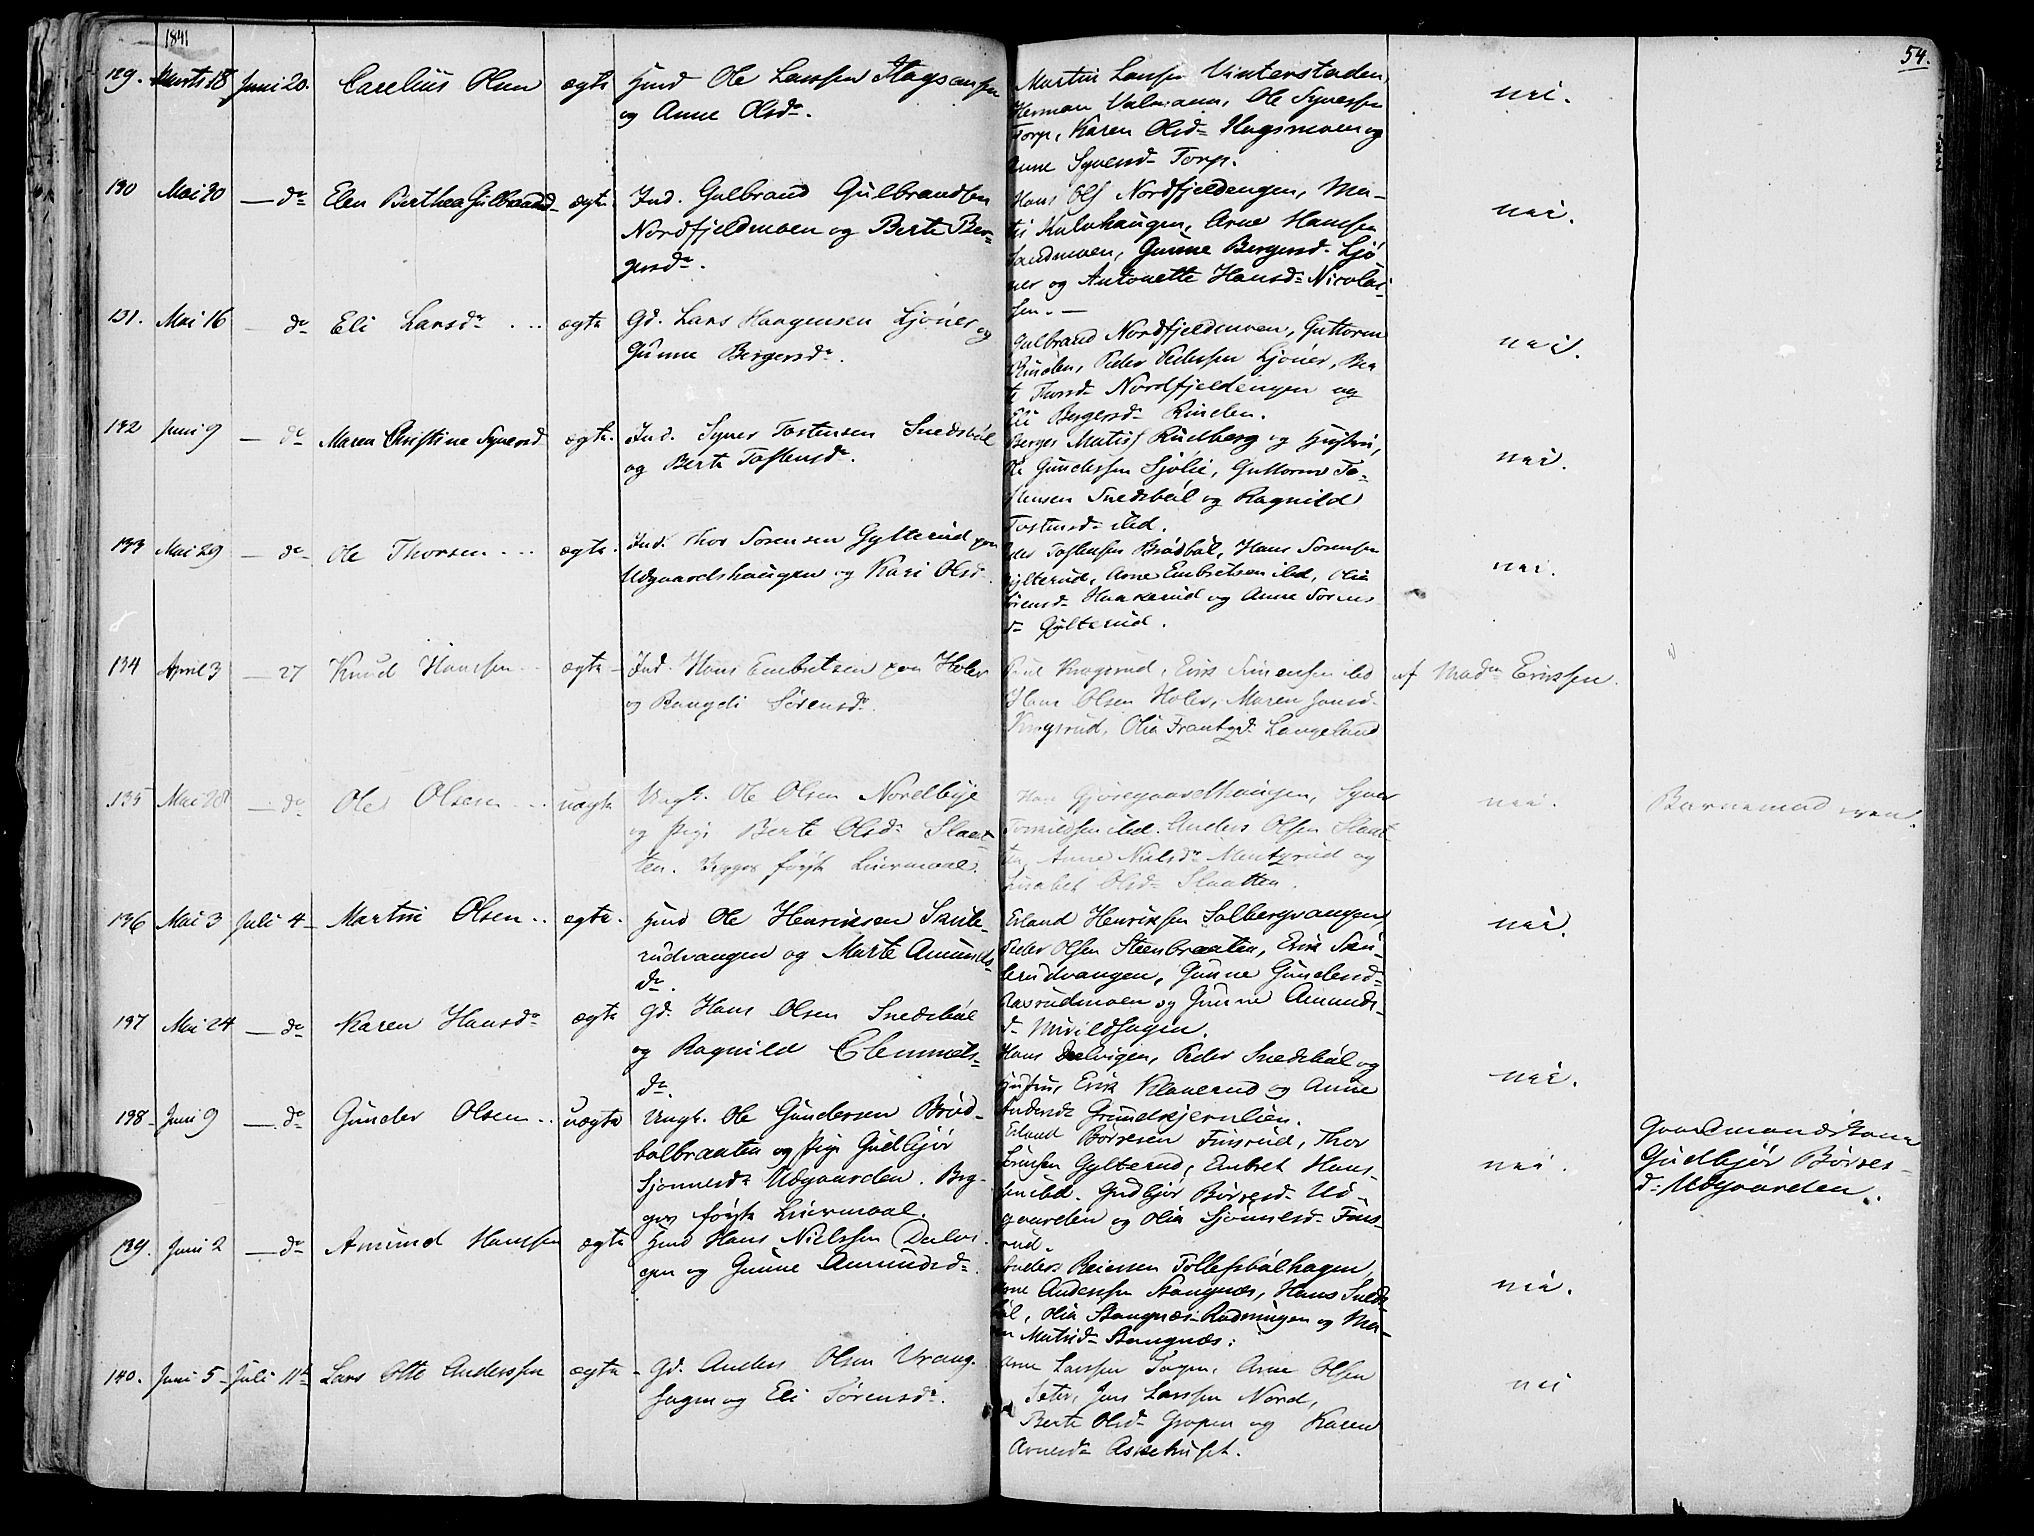 54.
1841
129. Marts 18 Juni 20. Carelius Olsen ægte Huusmd Ole Larssen
og Anne Olsdr.
Martin Larssen Vinterstaden,
Herman Valmann, Ole Syversen
Torp, Karen Olsd Hagsmoen og
Anne Syversd Torp.
nei.
130 Mai 30 — do Elen Berthea Gulbrandsd ægte Ind. Gulbrand Gulbrandsen
Nordfjeldmoen og Berte Ber-
gersdr.
Hans Ols Nordfjeldengen, Ma-
tis Kulvhaugen, Arne Hansen
Sandmoen, Gunne Bergersd Ljø
ner og Antonette Hansd Nicolai-
sen. —
nei.
131. Mai 16 — do Eli Larsdr ægte Gd. Lars Haagensen Ljøner og
Gunne Bergersdr.
Gulbrand Nordfjeldmoen, Guttorm
Rinden, Peder Pedersen Ljøner, Ber
te Nordfjeldengen og
Eli Bergersd Rinden.
nei.
132 Juni 9 — do Maren Christine Syversd ægte. Ind. Syver Tostensen Snedsbøl
og Berte Tostensdr.
Berger Matis Rudberg og Hustru,
Ole Gundersen Sjølie, Guttorm To-
stensen Snedsbøl og Ragnild
Tostensd ibd.
nei.
133 Mai 29 — do Ole Thorsen ægte. Ind. Thor Sørensen Gylterud paa
Udgaardshaugen og Kari Olsd
Tostensen Brødbøl, Hans Sørensen
Gylterud, Arne Embretsen ibd, Olia
Sørensd Haakerud og Anne Sørens
d Gylterud.
nei.
134 April 3 — 27 Knud Hanssen ægte Ind. Hans Embretsen paa Holer
og Rangdi Sørensdr.
Krogsrud, Erik Simensen ibd
Hans Olsen Holer, Maren Jonsd
Krogsrud, Olia Langeland
af Madm Erikssen.
135 Mai 28 — do Ole Olsen uægte Ungk. Ole Olsen Nordbye
og Pige Berte Olsd Slaat
ten. Begges første Leiermaal.
Hans Gjøsegaardshaugen, Syver
ibd. Anders Olsen Slaat
ten, Anne Nielsd og
Lisabet Olsd Slaatten.
nei. Barnemad
136 Mai 3 Juli 4 Martin Olsen ægte. Huusmd Ole Henriksen Skule-
rudvangen og Marte Amunds-
dr.
Erland Henriksen Solbergvangen,
Peder Olsen Steenbraaten, Erik Sku-
lerudvangen, Gunne Gundersd
Raxrudmoen og Gunne Amunds-
d
nei.
137 Mai 24 — do Karen Hansdr ægte Gd. Hans Olsen Snedsbøl
og Ragnild Clemmets-
dr.
Hans Dalvigen, Peder Snedsbøl og
Hustru, Erik Klanerud og Anne
Andersd Grundtjernlien.
nei.
138 Juni 9 — do Gunder Olsen uægte Ungk. Ole Gundersen Brød-
bølbraaten og Pige Gudbjør
Sjønnesd Udgaarden. Beg-
ges første Leiermaal.
Erland Børresen Finsrud, Thor
Sørensen Gylterud, Embret Hans-
sen ibd. Gudbjør Børresd Ud-
gaarden og Olia Sjønnesd Fins-
rud.
nei.
Gaardmandskone
Gudbjør Børres-
d Udgaarden.
139. Juni 2 — do Amund Hanssen ægte Huusmd Hans Nielssen Dalvi-
gen og Gunne Amundsd.
Anders Reiersen Tollefsbølhagen,
Arne Anderssen Stangnæs, Hans Sneds-
bøl, Olia Stangnæs-Rødningen og Ma-
ren Matisd Stangnæs.
nei.
140. Juni 5 Juli 11te Lars Otto Anderssen ægte Gd. Anders Olsen Vrang-
hagen og Eli Sørensdr.
Arne Larssen Arne Olsen
Seter, Jens Larssen Nord,
Berte Olsd Gropen og Karen
Arnesd Askehuset.
nei